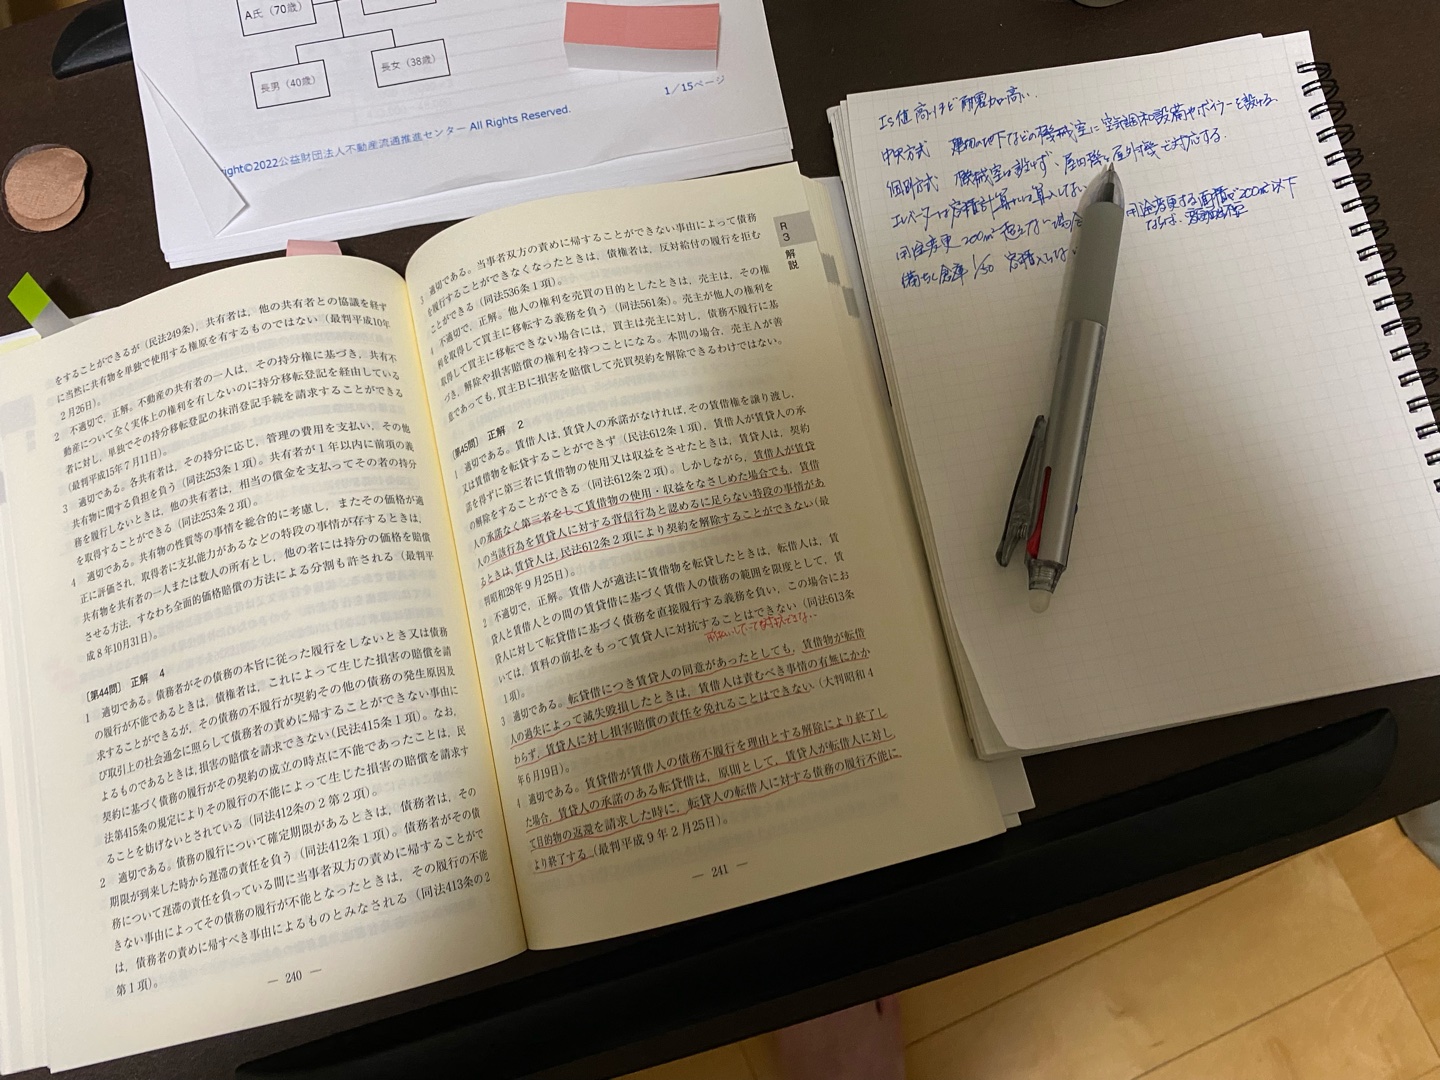 A氏（70歳）
長男（40歳）
長女（38歳）
1／15ページ
ght©2022公益財団法人不動産流通推進センター All Rights Reserved.
をすることができるが（民法249条），共有者は，他の共有者との協議を経ず
に当然に共有物を単独で使用する権原を有するものではない（最判平成10年
2月26日）。
2　不適切で，正解。不動産の共有者の一人は，その持分権に基づき，共有不
動産について全く実体上の権利を有しないのに持分移転登記を経由している
者に対し，単独でその持分移転登記の抹消登記手続を請求することができる
（最判平成15年7月11日）。
3　適切である。各共有者は，その持分に応じ，管理の費用を支払い，その他
共有物に関する負担を負う（同法253条1項）。共有者が1年以内に前項の義
務を履行しないときは，他の共有者は，相当の償金を支払ってその者の持分
を取得することができる（同法253条2項）。
4　適切である。共有物の性質等の事情を総合的に考慮し，またその価格が適
正に評価され，取得者に支払能力があるなどの特段の事情が存するときは，
共有物を共有者の一人または数人の所有とし，他の者には持分の価格を賠償
させる方法，すなわち全面的価格賠償の方法による分割も許される（最判平
成8年10月31日）。
〔第44問〕　正解　4
1　適切である。債務者がその債務の本旨に従った履行をしないとき又は債務
の履行が不能であるときは，債権者は，これによって生じた損害の賠償を請
求することができるが，その債務の不履行が契約その他の債務の発生原因及
び取引上の社会通念に照らして債務者の責めに帰することができない事由に
よるものであるときは，損害の賠償を請求できない（民法415条1項）。なお，
契約に基づく債務の履行がその契約の成立の時点に不能であったことは，民
法第415条の規定によりその履行の不能によって生じた損害の賠償を請求す
ることを妨げないとされている（同法412条の2第2項）。
2　適切である。債務の履行について確定期限があるときは，債務者は，その
期限が到来した時から遅滞の責任を負う（同法412条1項）。債務者がその債
務について遅滞の責任を負っている間に当事者双方の責めに帰することがで
きない事由によってその債務の履行が不能となったときは，その履行の不能
は，債務者の責めに帰すべき事由によるものとみなされる（同法413条の2
第1項）。
― 240 ―
R3
解説
3　適切である。当事者双方の責めに帰することができない事由によって債務
を履行することができなくなったときは，債権者は，反対給付の履行を拒む
ことができる（同法536条1項）。
4　不適切で，正解。他人の権利を売買の目的としたときは，売主は，その権
利を取得して買主に移転する義務を負う（同法561条）。売主が他人の権利を
取得して買主に移転できない場合には，買主は売主に対し，債務不履行に基
づき，解除や損害賠償の権利を持つことになる。本問の場合，売主人が善
意であっても，買主Bに損害を賠償して売買契約を解除できるわけではない。
〔第45問〕　正解　2
1　適切である。賃借人は，賃貸人の承諾がなければ，その賃借権を譲り渡し，
又は賃借物を転貸することができず（民法612条1項），賃借人が賃貸人の承
諾を得ずに第三者に賃借物の使用又は収益をさせたときは，賃貸人は，契約
の解除をすることができる（同法612条2項）。しかしながら，賃借人が賃貸
人の承諾なく第三者をして賃借物の使用・収益をなさしめた場合でも，賃借
人の当該行為を賃貸人に対する背信行為と認めるに足らない特段の事情があ
るときは，賃貸人は，民法612条2項により契約を解除することができない（最
判昭和28年9月25日）。
2　不適切で，正解。賃借人が適法に賃借物を転貸したときは，転借人は，賃
貸人と賃借人との間の賃貸借に基づく賃借人の債務の範囲を限度として，賃
貸人に対して転貸借に基づく債務を直接履行する義務を負い，この場合にお
いては，賃料の前払をもって賃貸人に対抗することはできない（同法613条
1項）。
3　適切である。転貸借につき賃貸人の同意があったとしても，賃借物が転借
人の過失によって滅失毀損したときは，賃借人は責むべき事情の有無にかか
わらず，賃貸人に対し損害賠償の責任を免れることはできない（大判昭和4
年6月19日）。
4　適切である。賃貸借が賃借人の債務不履行を理由とする解除により終了し
た場合，賃貸人の承諾のある転貸借は，原則として，賃貸人が転借人に対し
て目的物の返還を請求した時に，転貸人の転借人に対する債務の履行不能に
より終了する。（最判平成9年2月25日）。
― 241 ―
Is値高いほど耐震力が高い．
中央方式　建物の地下などの機械室に空気調和設備やボイラーを設ける．
個別方式　機械室は設けず，屋内機と屋外機で対応する．
エレベーターは容積計算には算入しない
用途変更 200㎡超えない場合
用途変更する面積が200㎡以下
ならば，
備蓄倉庫 1/50 容積入らない